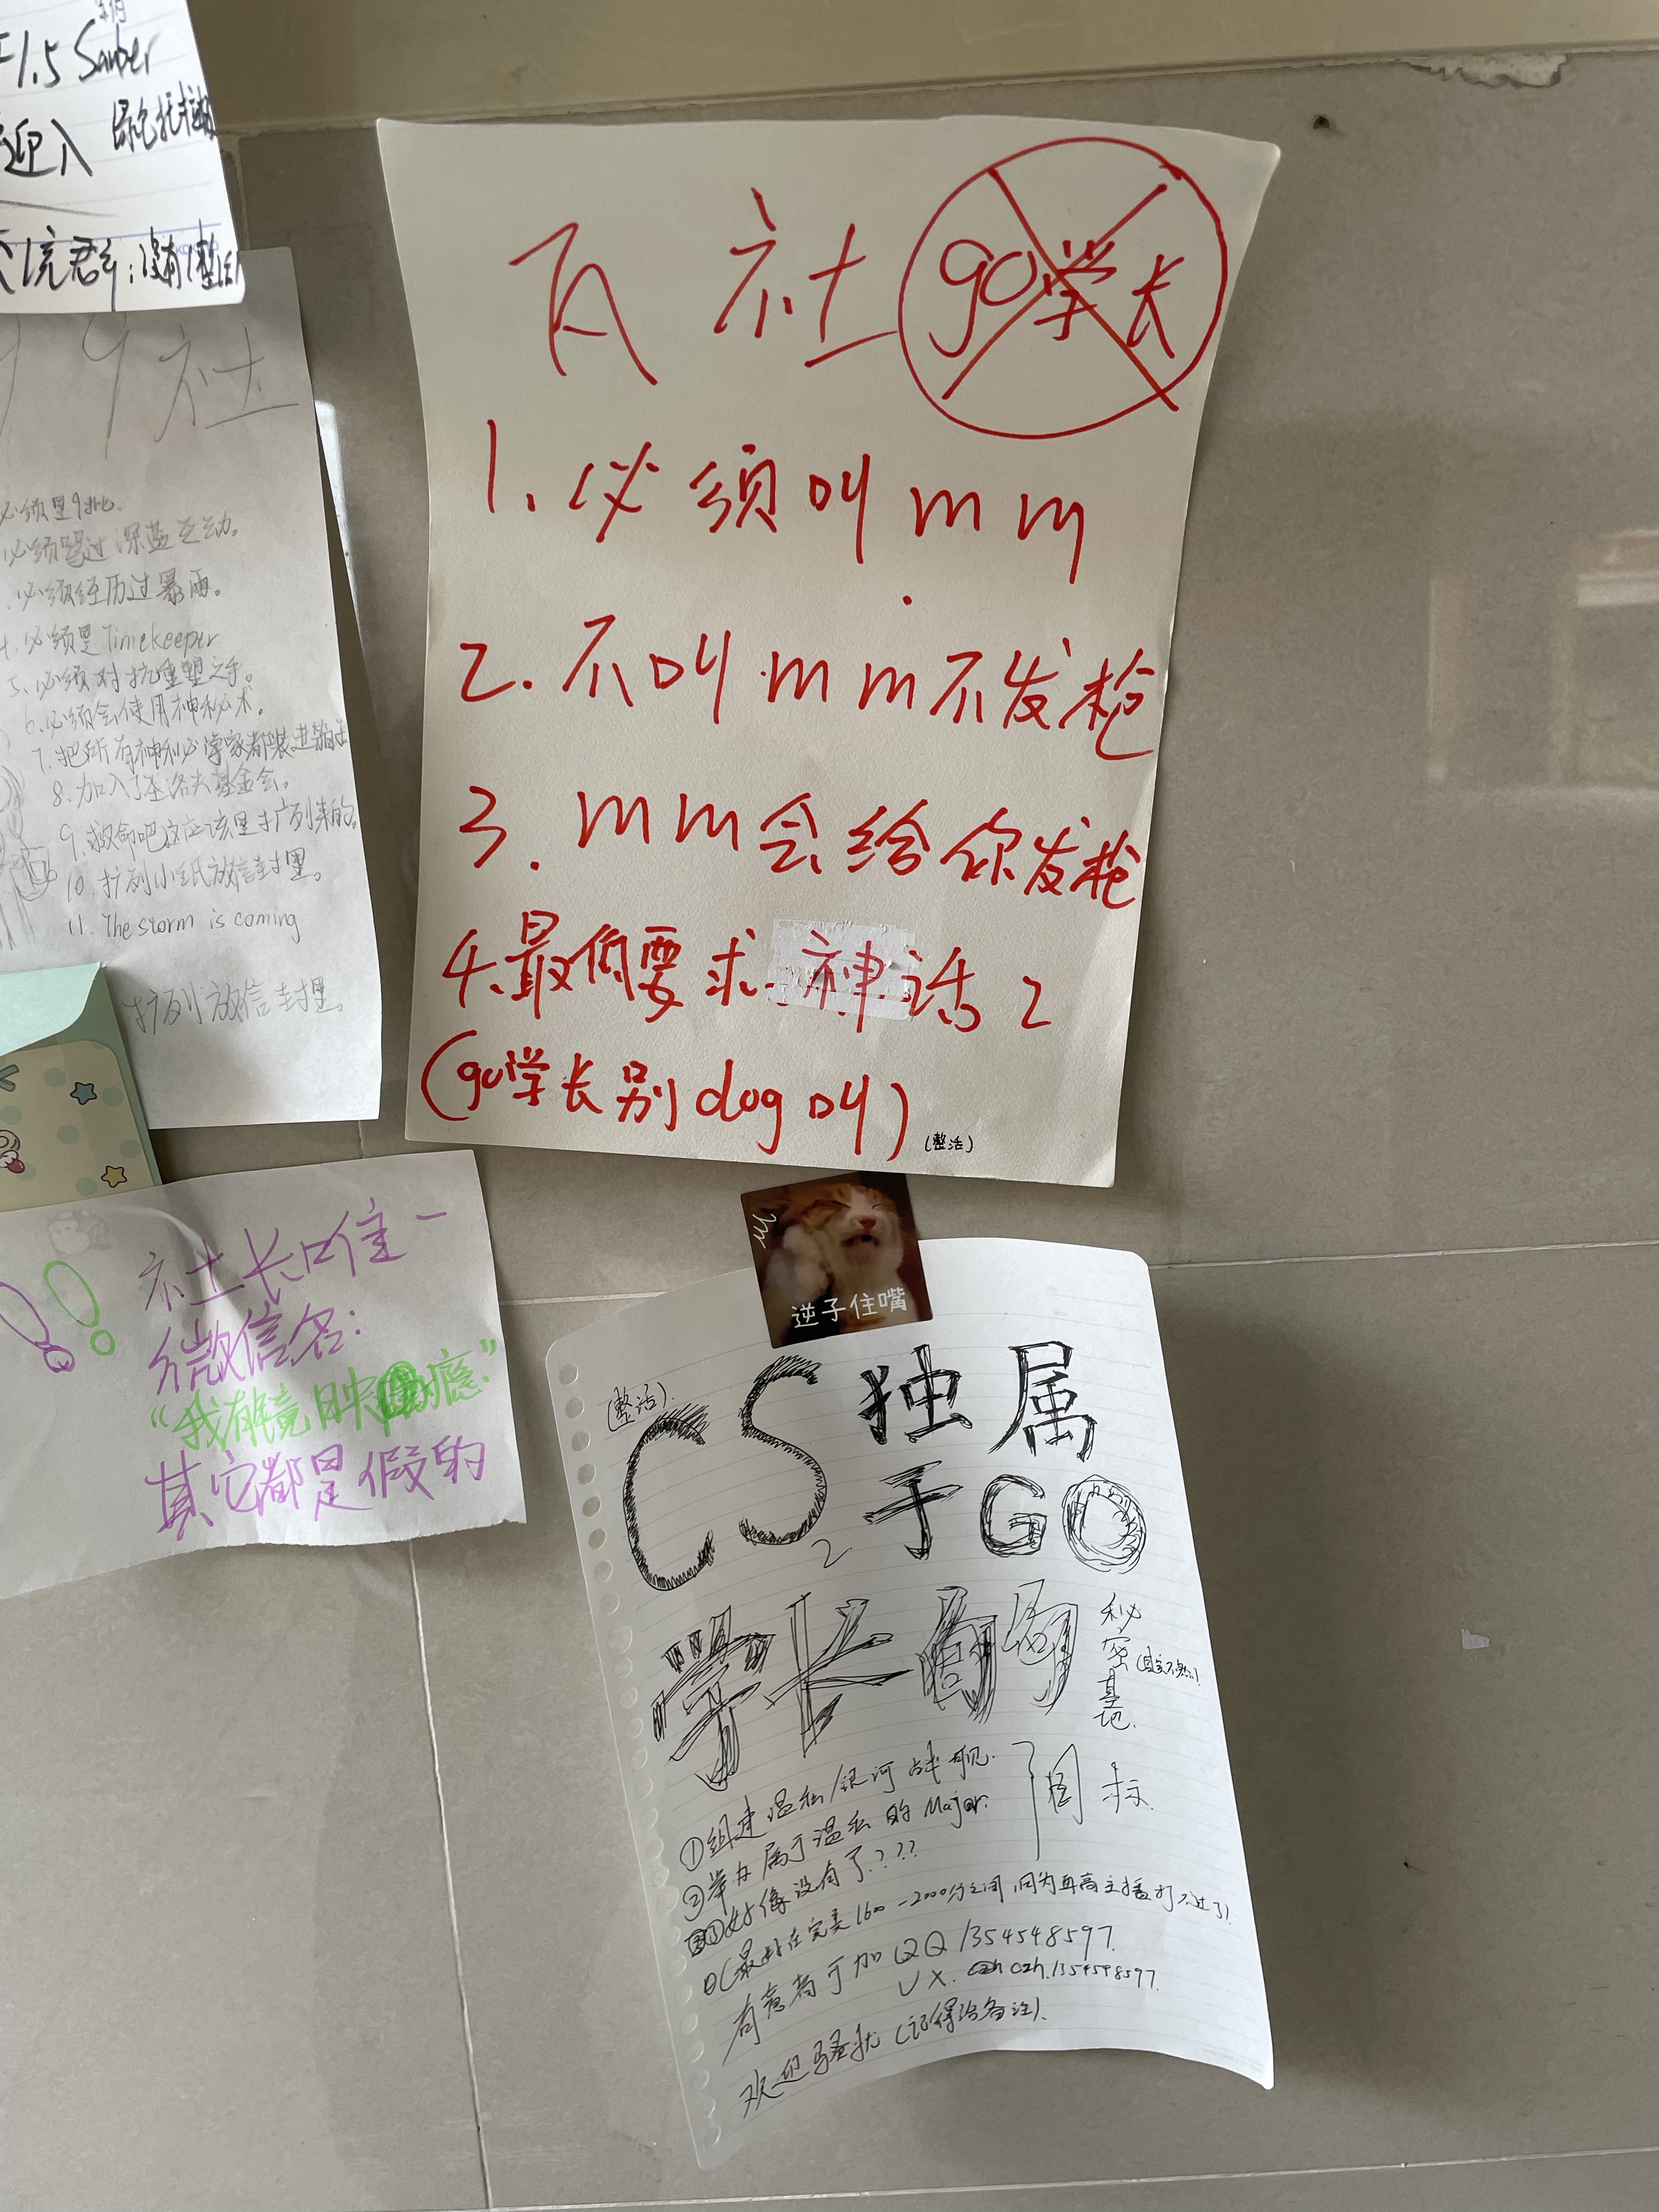 1.5 Sauber
迎入
瓦社 go学长
1.必须叫mm
2.不叫mm不发枪
3.mm会给你发枪
4.最低要求神话2
(go学长别dog叫)
(整活)
社
必须是
必须经历过暴雨。
4.必须是Timekeeper
5.必须对抗重塑之手。
6.必须会使用神秘术。
7.把所有神秘学家都装进箱
8.加入了圣洛夫基金会。
9.救命吧这应该是扩列来的。
10.扩列小纸放信封里。
11.The storm is coming
扩列放信封里。
社长唯一
微信名:
其它都是假的
逆子住嘴
(整活).
CS2独属
于GO
学长的
秘密基地.
①组建温私/银河战舰.
②举办属于温私的Major.
目标.
③好像没有了???
(最好在完美1600-2000分之间,因为再高主播打不过了)
有意者可加QQ 1354548597.
VX.
欢迎骚扰(记得给备注).